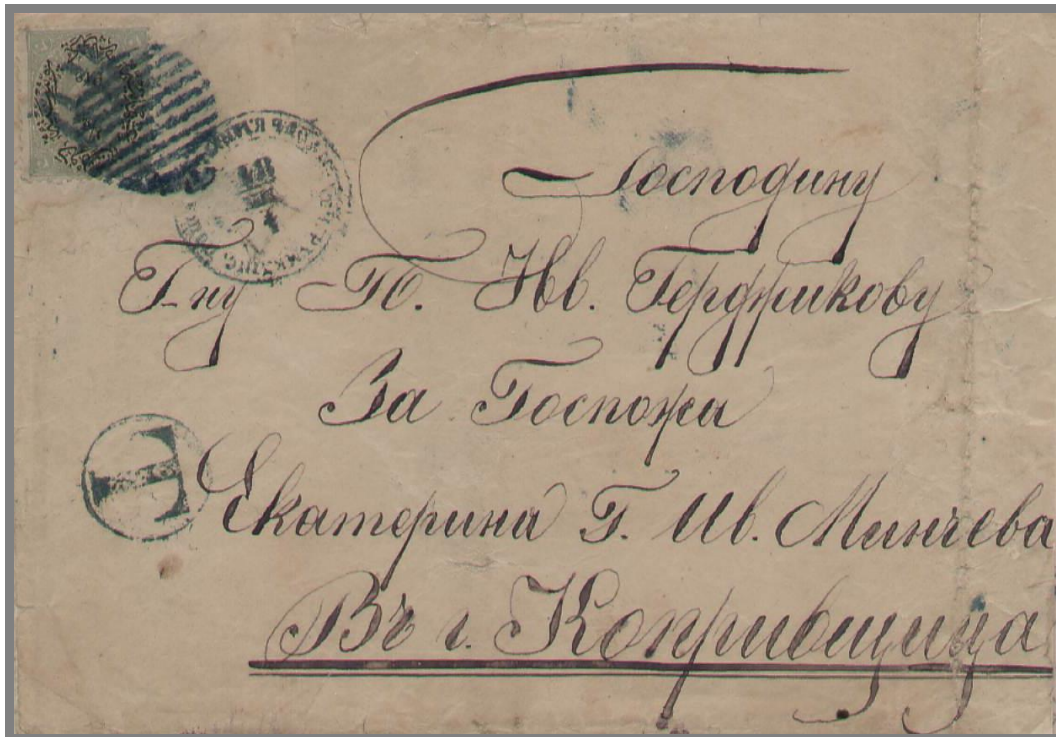 Господину
Г-ну П. Ив. Герджикову
За Госпожа
Екатерина Г. Ив. Минчева
Въ г. Копривщица
T